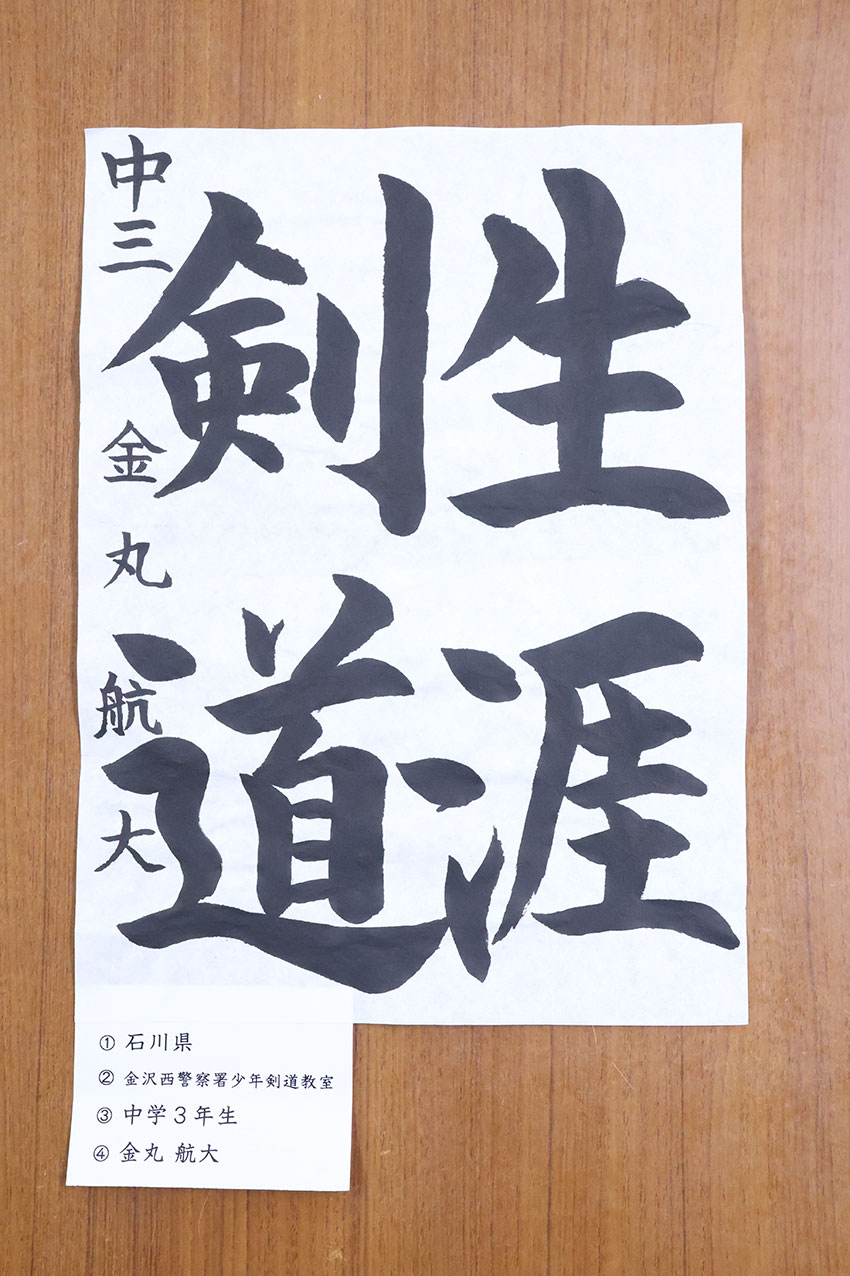 生涯
剣道
中三 金丸 航大
① 石川県
② 金沢西警察署少年剣道教室
③ 中学3年生
④ 金丸 航大